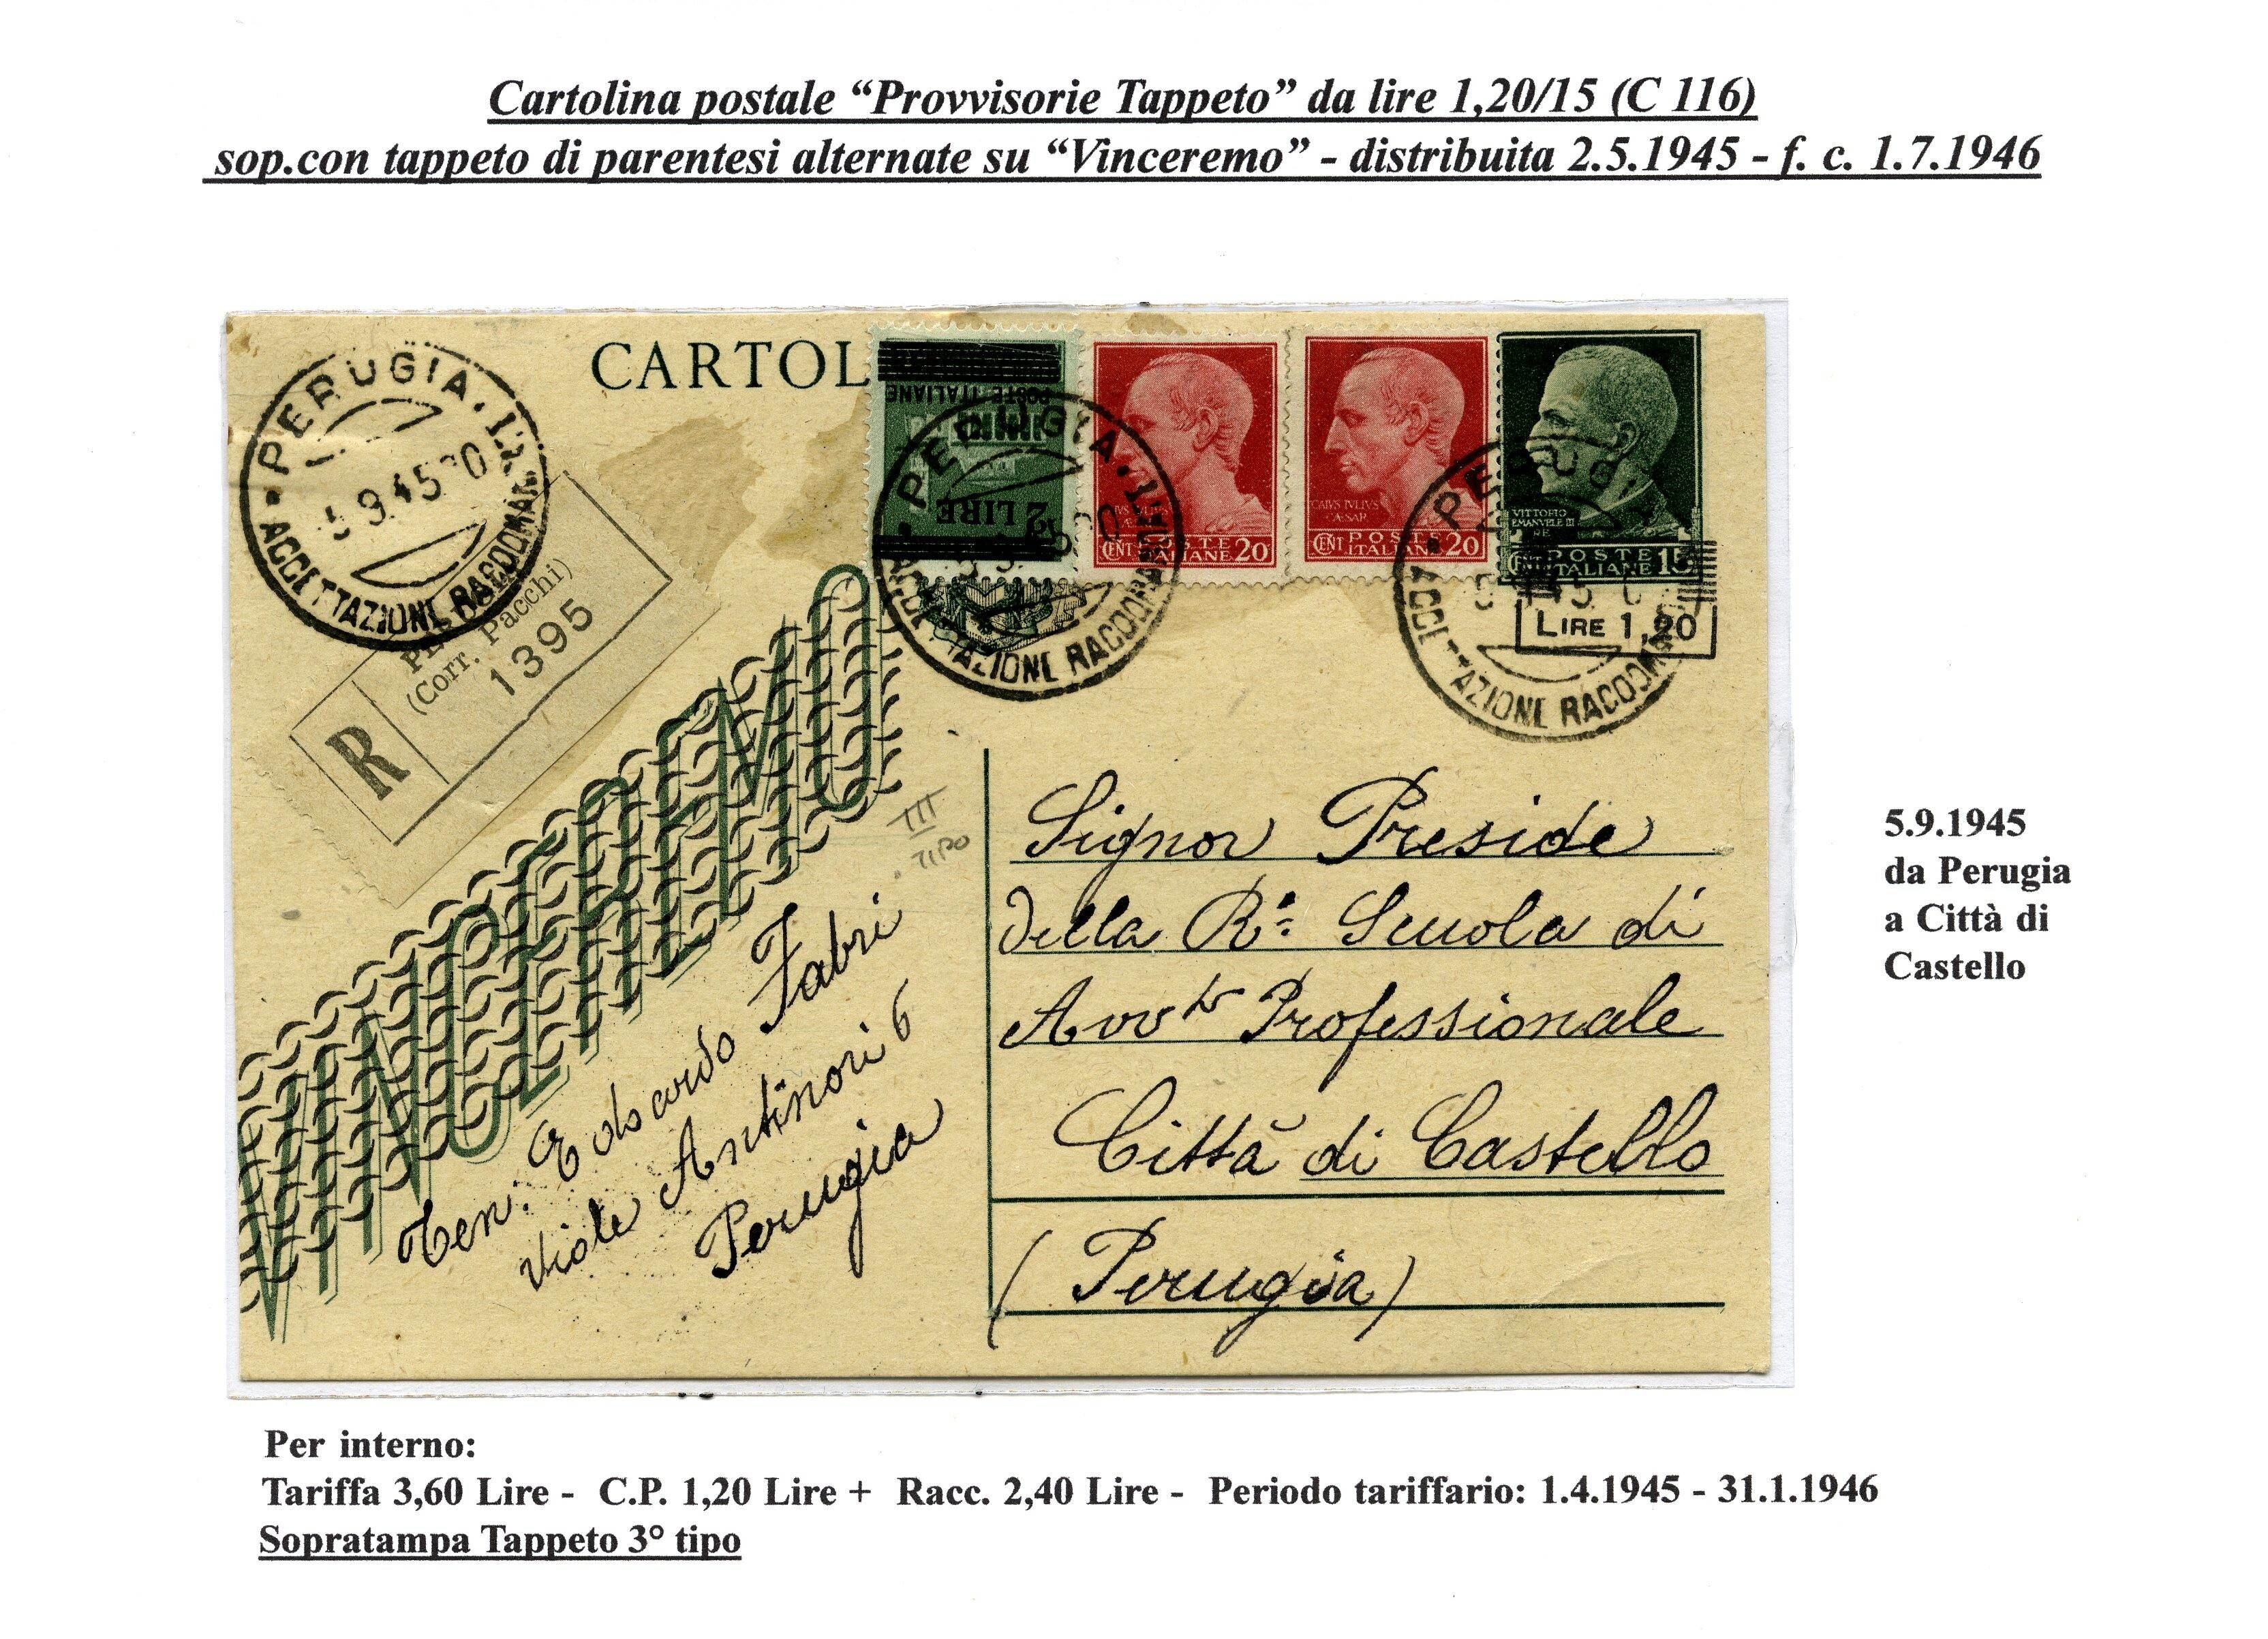 Cartolina postale “Provvisorie Tappeto” da lire 1,20/15 (C 116)
sop.con tappeto di parentesi alternate su “Vinceremo” - distribuita 2.5.1945 - f. c. 1.7.1946
CARTOL
PERUGIA
5 9.45
ACCETTAZIONE RACCOMAN
(Corr. Pacchi)
1395
R
POSTE ITALIANE
2 LIRE
PERUGIA
ACCETTAZIONE RACCOMAN
CENT POSTE ITALIANE 20
CAIVS IVLIVS
CÆSAR
CENT POSTE ITALIANE 20
VITTORIO
EMANVELE III
RE
CENT POSTE ITALIANE 15
LIRE 1,20
PERUGIA
ACCETTAZIONE RACCOMAN
VINCEREMO
III
TIPO
Ten. Edoardo Fabri
Viale Antinori 6
Perugia
Signor Preside
della Rª Scuola di
Avvto Professionale
Città di Castello
(Perugia)
5.9.1945
da Perugia
a Città di
Castello
Per interno:
Tariffa 3,60 Lire - C.P. 1,20 Lire + Racc. 2,40 Lire - Periodo tariffario: 1.4.1945 - 31.1.1946
Sopratampa Tappeto 3° tipo